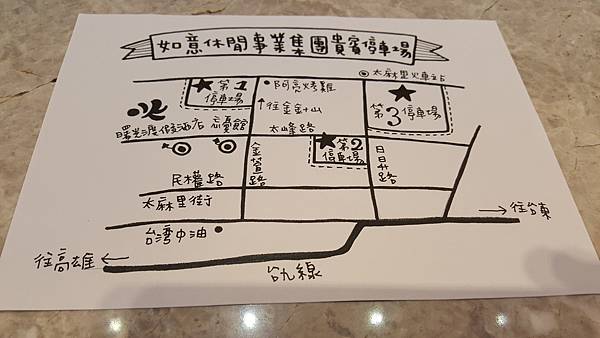 如意休閒事業集團貴賓停車場
太麻里火車站
第1
停車場
阿亮烤雞
往金針山
第3停車場
曙光渡假酒店
太峰路
第2
停車場
金萱路
日昇路
民權路
太麻里街
往台東
台灣中油
往高雄
台九線